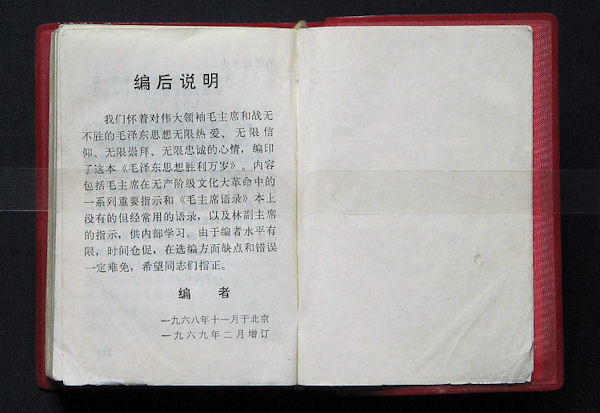 编后说明
我们怀着对伟大领袖毛主席和战无
不胜的毛泽东思想无限热爱、无限信
仰、无限崇拜、无限忠诚的心情，编印
了这本《毛泽东思想胜利万岁》。内容
包括毛主席在无产阶级文化大革命中的
一系列重要指示和《毛主席语录》本上
没有的但经常用的语录，以及林副主席
的指示，供内部学习。由于编者水平有
限，时间仓促，在选编方面缺点和错误
一定难免，希望同志们指正。
编 者
一九六八年十一月于北京
一九六九年二月增订